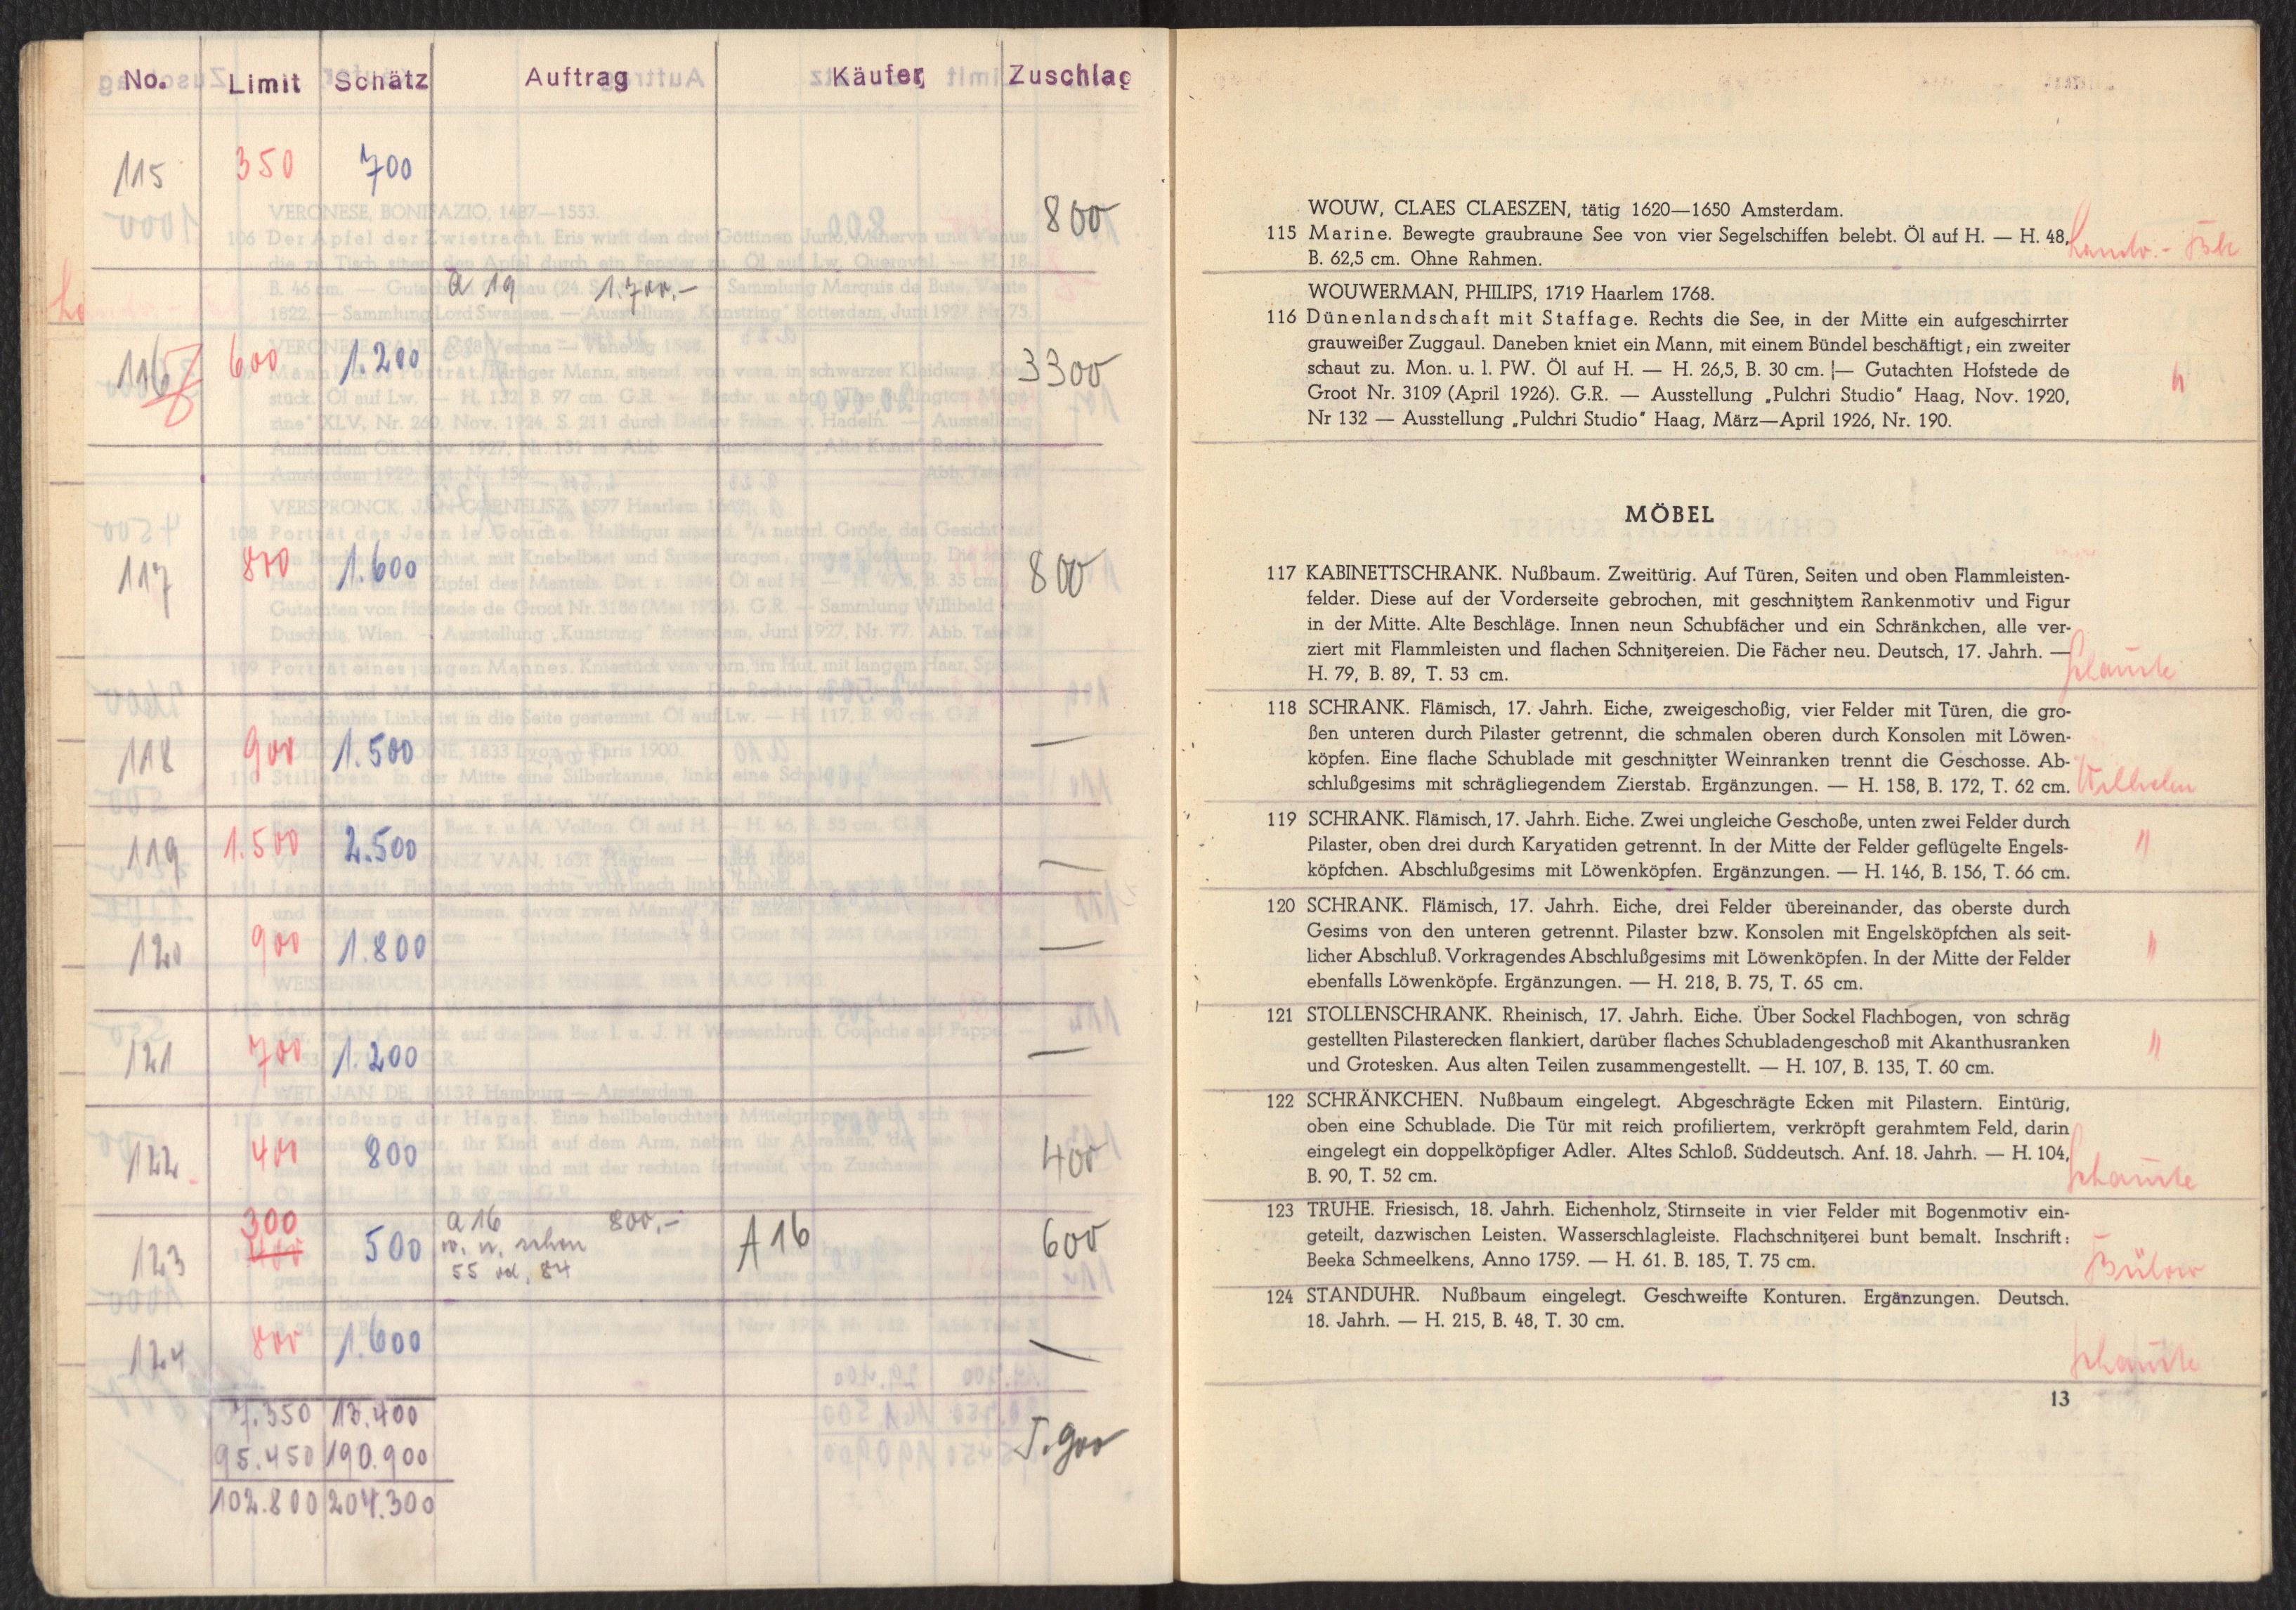 No. Limit Schätz Auftrag Käufer Zuschlag
115 350 700 800
a 19 1.700,-
116 600 1.200 3300
117 800 1.600 800
118 900 1.500 —
119 1.500 2.500 —
120 900 1.800 —
121 700 1.200 —
122 400 800 400
300 a 16 800,-
123 400 500 A 16 600
55 od. 84
124 800 1.600 —
7.350 13.400
5.900
95.450 190.900
102.800 204.300
WOUW, CLAES CLAESZEN, tätig 1620—1650 Amsterdam.
115 Marine. Bewegte graubraune See von vier Segelschiffen belebt. Öl auf H. — H. 48,
B. 62,5 cm. Ohne Rahmen.
WOUWERMAN, PHILIPS, 1719 Haarlem 1768.
116 Dünenlandschaft mit Staffage. Rechts die See, in der Mitte ein aufgeschirrter
grauweißer Zuggaul. Daneben kniet ein Mann, mit einem Bündel beschäftigt; ein zweiter
schaut zu. Mon. u. l. PW. Öl auf H. — H. 26,5, B. 30 cm. — Gutachten Hofstede de
Groot Nr. 3109 (April 1926). G.R. — Ausstellung „Pulchri Studio" Haag, Nov. 1920,
Nr 132 — Ausstellung „Pulchri Studio" Haag, März—April 1926, Nr. 190.
MÖBEL
117 KABINETTSCHRANK. Nußbaum. Zweitürig. Auf Türen, Seiten und oben Flammleisten-
felder. Diese auf der Vorderseite gebrochen, mit geschnitztem Rankenmotiv und Figur
in der Mitte. Alte Beschläge. Innen neun Schubfächer und ein Schränkchen, alle ver-
ziert mit Flammleisten und flachen Schnitzereien. Die Fächer neu. Deutsch, 17. Jahrh. —
H. 79, B. 89, T. 53 cm.
118 SCHRANK. Flämisch, 17. Jahrh. Eiche, zweigeschoßig, vier Felder mit Türen, die gro-
ßen unteren durch Pilaster getrennt, die schmalen oberen durch Konsolen mit Löwen-
köpfen. Eine flache Schublade mit geschnitzter Weinranken trennt die Geschosse. Ab-
schlußgesims mit schrägliegendem Zierstab. Ergänzungen. — H. 158, B. 172, T. 62 cm. Wilhelm
119 SCHRANK. Flämisch, 17. Jahrh. Eiche. Zwei ungleiche Geschoße, unten zwei Felder durch
Pilaster, oben drei durch Karyatiden getrennt. In der Mitte der Felder geflügelte Engels- "
köpfchen. Abschlußgesims mit Löwenköpfen. Ergänzungen. — H. 146, B. 156, T. 66 cm.
120 SCHRANK. Flämisch, 17. Jahrh. Eiche, drei Felder übereinander, das oberste durch
Gesims von den unteren getrennt. Pilaster bzw. Konsolen mit Engelsköpfchen als seit- "
licher Abschluß. Vorkragendes Abschlußgesims mit Löwenköpfen. In der Mitte der Felder
ebenfalls Löwenköpfe. Ergänzungen. — H. 218, B. 75, T. 65 cm.
121 STOLLENSCHRANK. Rheinisch, 17. Jahrh. Eiche. Über Sockel Flachbogen, von schräg
gestellten Pilasterecken flankiert, darüber flaches Schubladengeschoß mit Akanthusranken "
und Grotesken. Aus alten Teilen zusammengestellt. — H. 107, B. 135, T. 60 cm.
122 SCHRÄNKCHEN. Nußbaum eingelegt. Abgeschrägte Ecken mit Pilastern. Eintürig,
oben eine Schublade. Die Tür mit reich profiliertem, verkröpft gerahmtem Feld, darin
eingelegt ein doppelköpfiger Adler. Altes Schloß. Süddeutsch. Anf. 18. Jahrh. — H. 104,
B. 90, T. 52 cm.
123 TRUHE. Friesisch, 18. Jahrh. Eichenholz, Stirnseite in vier Felder mit Bogenmotiv ein-
geteilt, dazwischen Leisten. Wasserschlagleiste. Flachschnitzerei bunt bemalt. Inschrift:
Beeka Schmeelkens, Anno 1759. — H. 61. B. 185, T. 75 cm. Bülow
124 STANDUHR. Nußbaum eingelegt. Geschweifte Konturen. Ergänzungen. Deutsch.
18. Jahrh. — H. 215, B. 48, T. 30 cm.
13